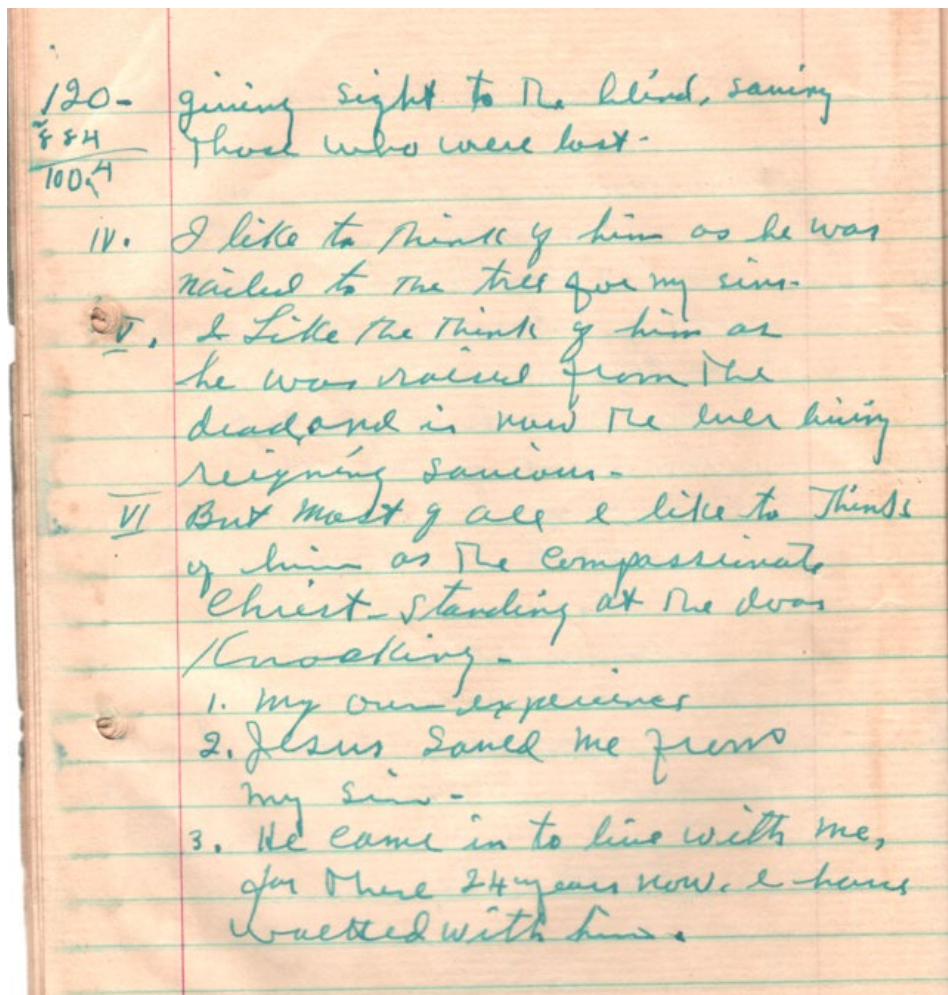 120- giving sight to the blind, saving
884 those who were lost-
100.4
IV. I like to think of him as he was
nailed to the tree for my sins-
V. I Like the think of him as
he was raised from the
dead, and is now the ever living
reigning Saviour-
VI But most of all I like to think
of him as the compassionate
Christ-standing at the door
Knocking-
1. my own experience
2. Jesus saved me from
my sin-
3. He came in to live with me,
for these 24 years now, I have
walked with him.